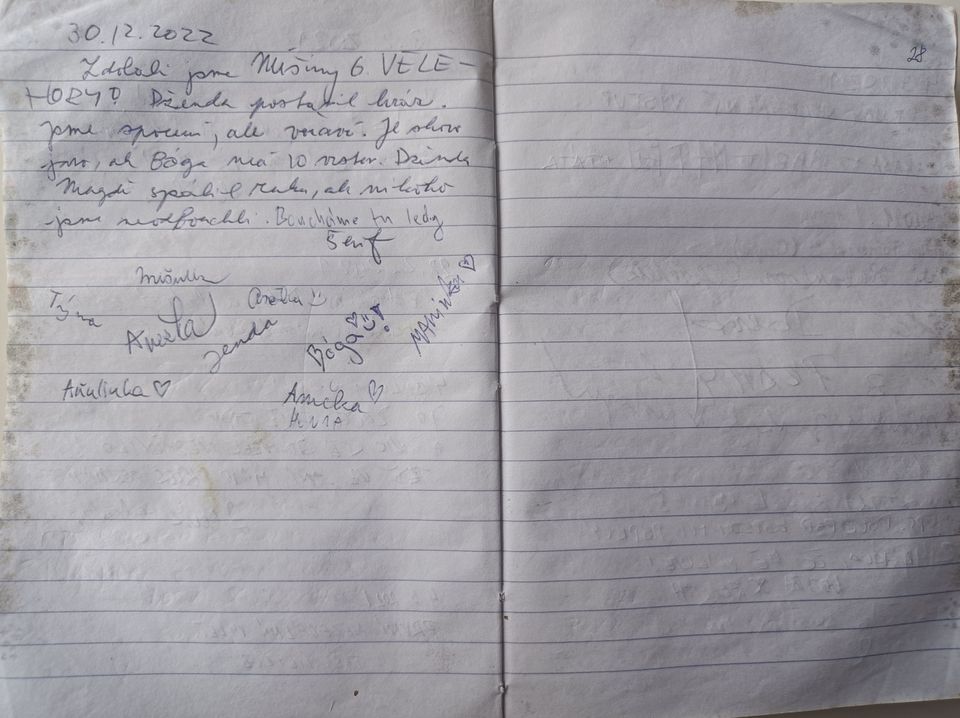 30.12.2022
Zdolali jsme Míšiny 6. VELE-
HORY! Dženda postavil hráz.
jsme spocení, ale voňaví. Je skoro
jaro, ale Bóga má 10 vrstev. Dženda
Magdě spálil ruku, ale nikoho
jsme neodbouchli. Boucháme tu ledy
Šerif
Mišulka
Týna
Aneta
Jenda
Bóga ♡ :) !
MAŇINKA ♡
Aňulinka ♡
Anička ♡
28